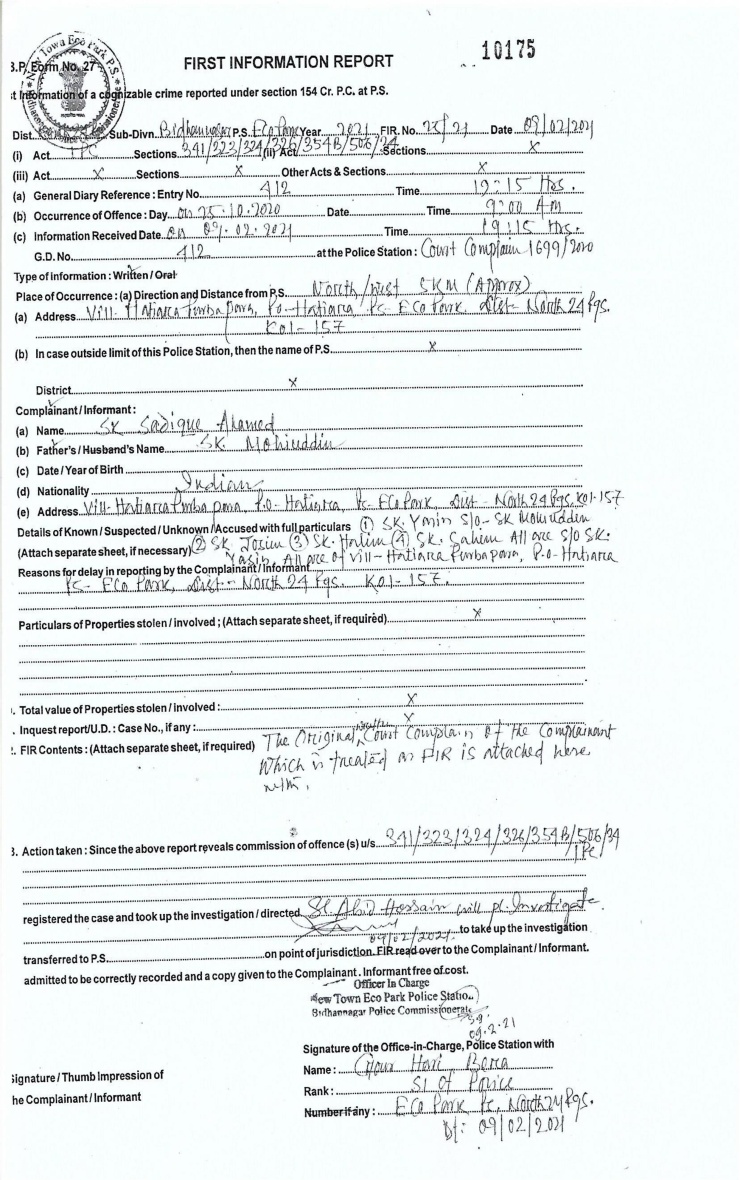 10175
FIRST INFORMATION REPORT
B.P. Form No. 27
New Town Eco Park P.S.
t Information of a cognizable crime reported under section 154 Cr. P.C. at P.S.
Dist. Sub-Divn. Bidhannagar P.S. Eco Park Year 2021 FIR. No. 25/21 Date 09/02/2021
(i) Act IPC Sections 341/323/324/326/354B/506/34 (ii) Act Sections X
(iii) Act X Sections X Other Acts & Sections X
(a) General Diary Reference : Entry No. 412 Time 19:15 Hrs.
(b) Occurrence of Offence : Day on 25.10.2020 Date Time 9:00 Am
(c) Information Received Date on 09.02.2021 Time 19:15 Hrs.
G.D. No. 412 at the Police Station : Court Complain 1699/2020
Type of information : Written / Oral
Place of Occurrence : (a) Direction and Distance from P.S. North/west 5KM (Approx)
(a) Address Vill- Hatiara Purbapara, Po- Hatiara Ps- Eco Park, Dist- North 24 Pgs.
Kol- 157
(b) In case outside limit of this Police Station, then the name of P.S. X
District X
Complainant / Informant :
(a) Name Sk Sadique Ahamed
(b) Father's / Husband's Name SK Mohiuddin
(c) Date / Year of Birth
(d) Nationality Indian
(e) Address Vill- Hatiara Purba para, P.o- Hatiara, Ps- Eco Park, Dist- North 24 Pgs, Kol-157
Details of Known / Suspected / Unknown / Accused with full particulars (1) SK. Yasin S/O- SK Mohiuddin
(Attach separate sheet, if necessary) (2) SK Josim (3) SK. Halim (4) SK. Sahim All are S/O SK.
Yasin, All are of Vill- Hatiara Purba para, P.o- Hatiara
Reasons for delay in reporting by the Complainant / Informant
Ps- Eco Park, Dist- North 24 Pgs. Kol- 157.
Particulars of Properties stolen / involved ; (Attach separate sheet, if required) X
. Total value of Properties stolen / involved : X
. Inquest report/U.D. : Case No., if any : X
. FIR Contents : (Attach separate sheet, if required) The Original written Court Complain of the Complainant
Which is treated as FIR is attached here
with.
3. Action taken : Since the above report reveals commission of offence (s) u/s. 341/323/324/326/354B/506/34
IPC
registered the case and took up the investigation / directed SI. Abid Hossain will pl. Investigate.
09/02/2021. to take up the investigation
transferred to P.S. on point of jurisdiction. FIR read over to the Complainant / Informant.
admitted to be correctly recorded and a copy given to the Complainant. Informant free of cost.
Officer In Charge
New Town Eco Park Police Station
Bidhannagar Police Commissionerate
09.2.21
Signature of the Office-in-Charge, Police Station with
Name : Gour Hari Bera
Rank : SI of Police
Number if any : Eco Park Ps, North 24 Pgs.
Dt: 09/02/2021
Signature / Thumb Impression of
he Complainant / Informant